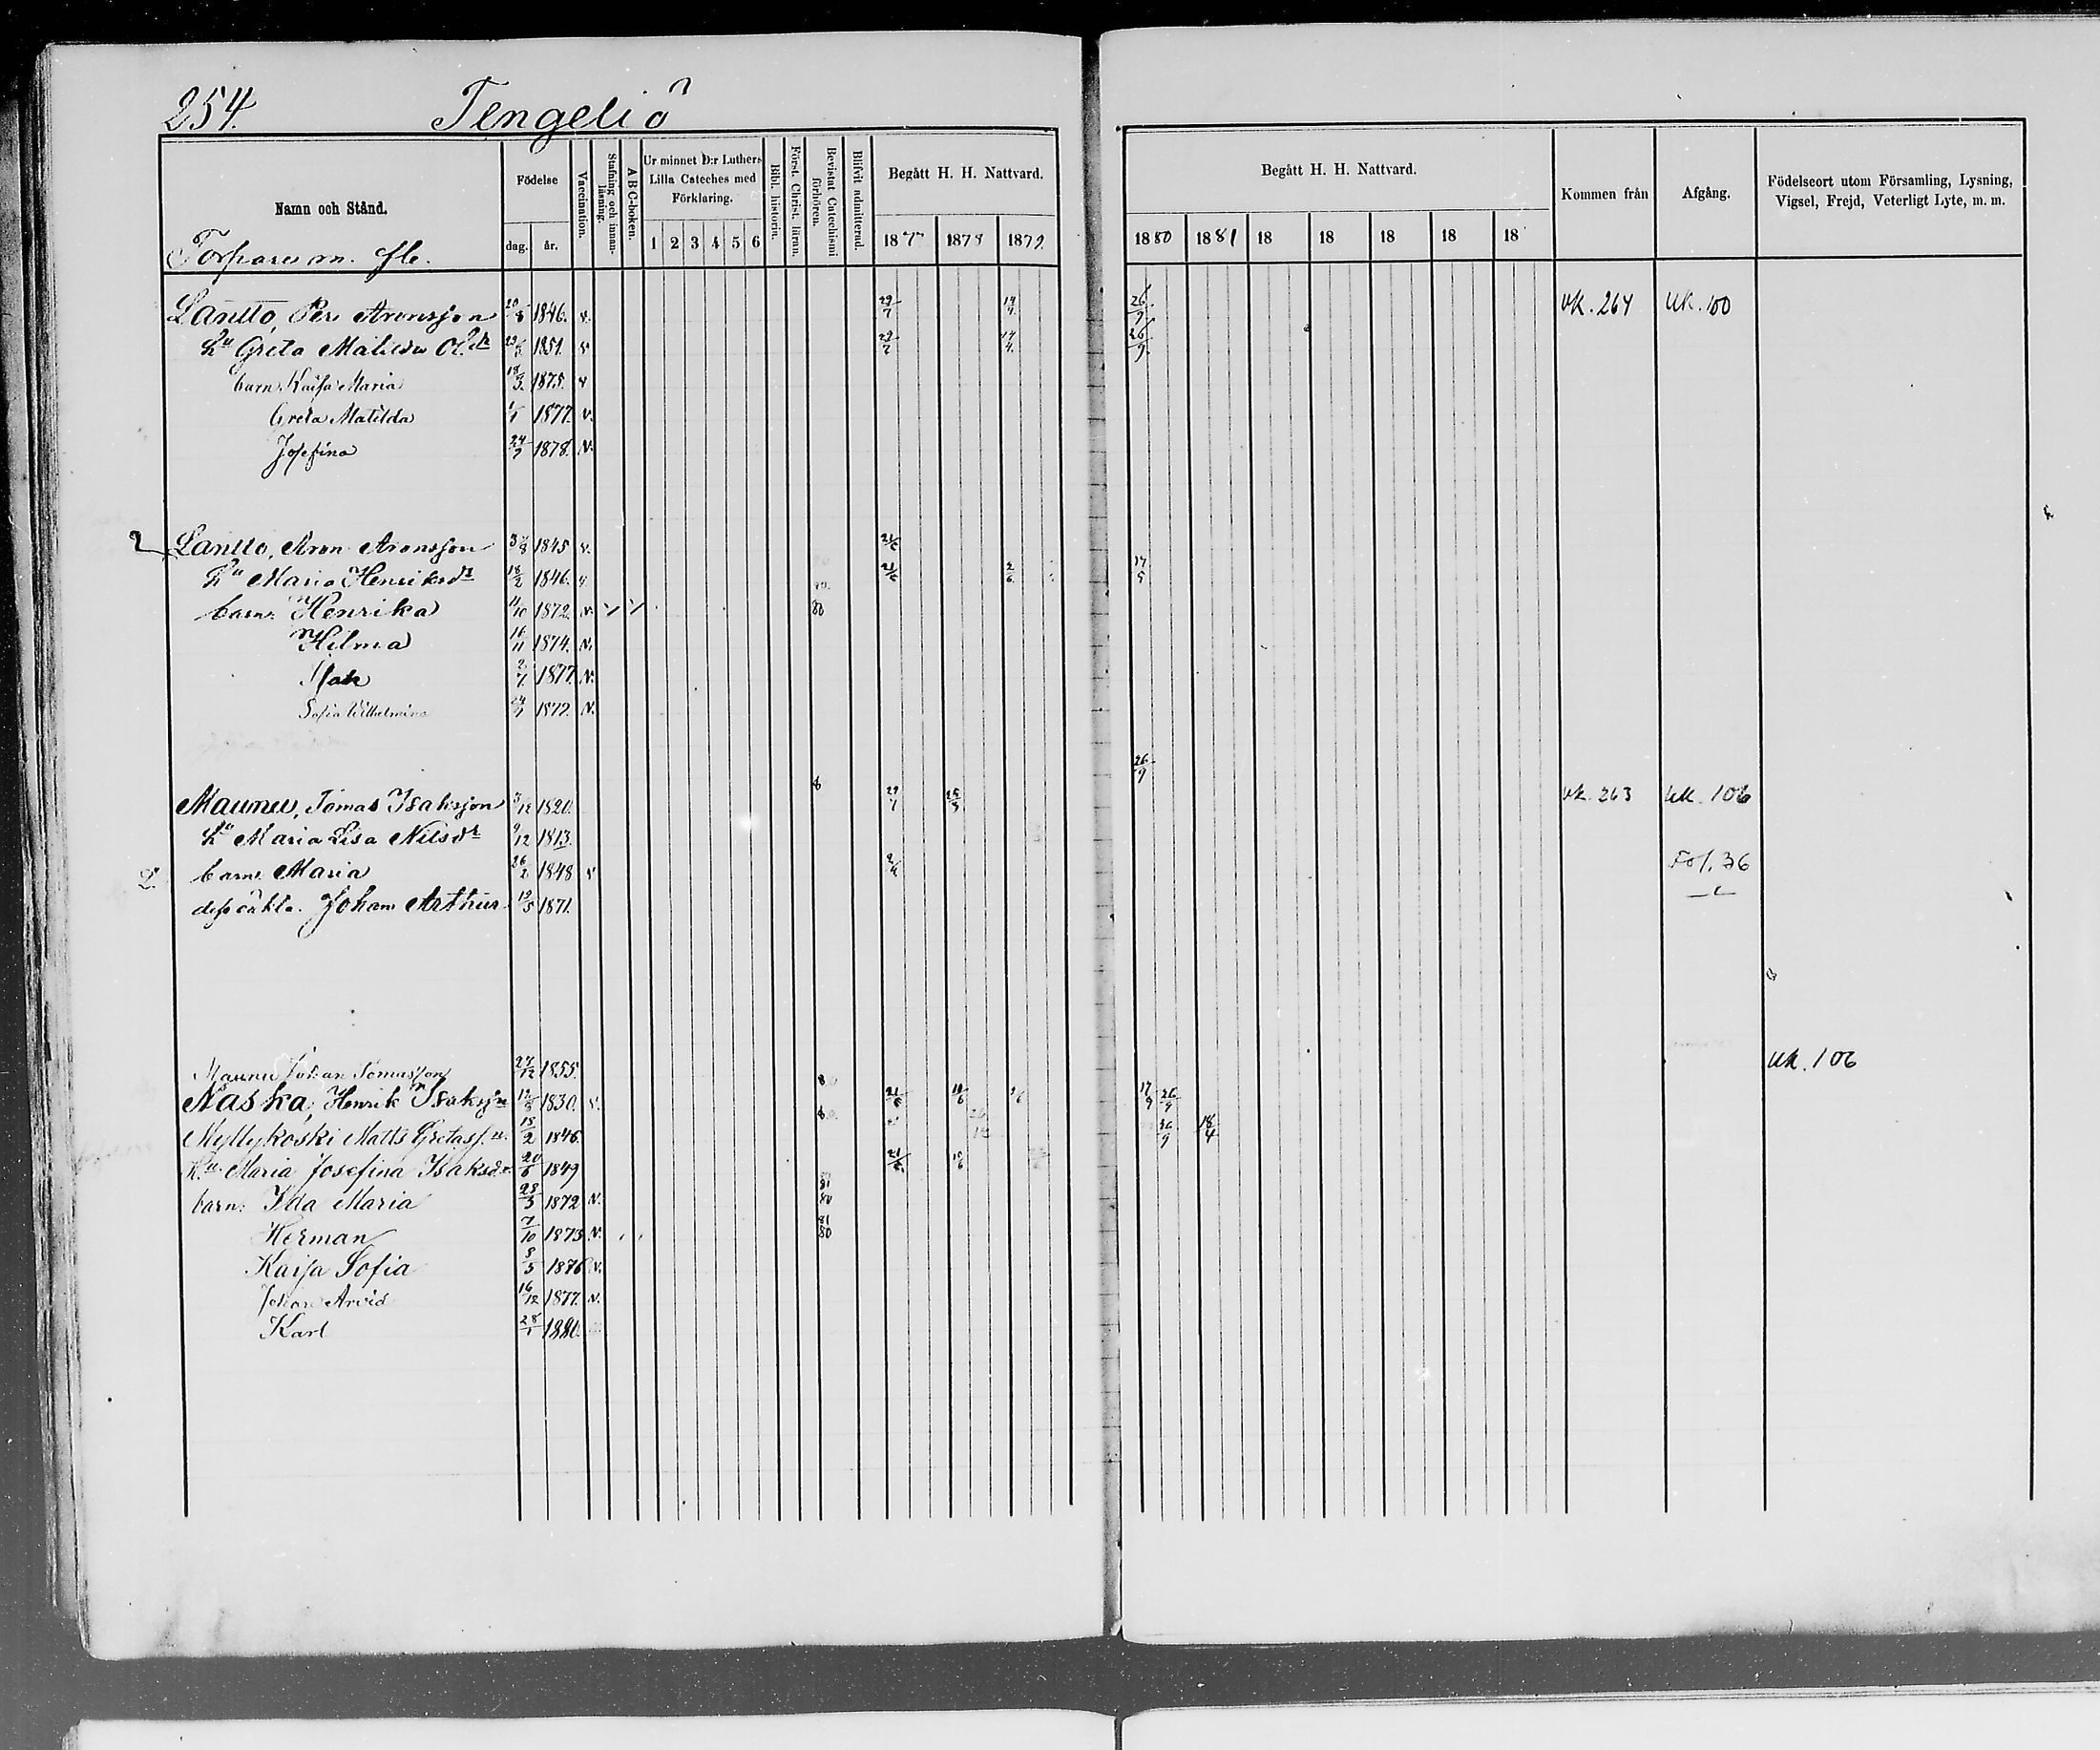 254. Tengeliö
Namn och Stånd. Födelse Vaccination. Stafning och innan-läsning. A B C-boken. Ur minnet D:r Luthers Lilla Cateches med Förklaring. Bibl. historia. Först. Christ. läran. Bevistat Catechismi förhören. Blifvit admitterad. Begått H. H. Nattvard. Begått H. H. Nattvard. Kommen från Afgång. Födelseort utom Församling, Lysning, Vigsel, Frejd, Veterligt Lyte, m. m.
dag. år. 1 2 3 4 5 6 187 1878 1879 1880 1881 18 18 18 18 18
Torpare m. fle.
Lantto, Pers Aronsson 1846. v. 29/7 26/9 vk. 264 uk. 100
hu Greta Matilda 1851. v 26/9
barn: Kaisa Maria 18/3 1875. v
Greta Matilda 1/1 1877. v.
Josefina 24/7 1878. v.
2 Lantto, Aron Aronsson 1845 v. 21/6
hu Maria Henriksdr 18/2 1846. v 21/6 2/6 17/9
barn: Henrika 11/10 1872. v. 80
Hilma 16/11 1874. v.
Isak 2/7 1877. v.
Sofia Wilhelmina v.
26/9
Maunu, Tomas Isaksson 3/12 1820. 29/7 vk. 263 uk. 106
hu Maria Lisa Nilsdr 9/12 1813.
barn: Maria 26/2 1848 v Fol. 36
dess oäkta. Johan Arthur 19/5 1871.
Maunu Johan Tomasson 27/12 1855. uk. 106
Naska, Henrik Isakss:n 1830. v. 21/6 17/9 26/9
Myllykoski Matts Gretass. 15/2 1846. 26/9 18/4
H:u Maria Josefina Isaksdr 20/6 1849 21/6
barn: Ida Maria 28/3 1872 v. 81 80
Herman 7/10 1873 v. 81 80
Kaisa Sofia 8/5 1876 v.
Johan Arvid 16/12 1877. v.
Karl 28/1 1880.